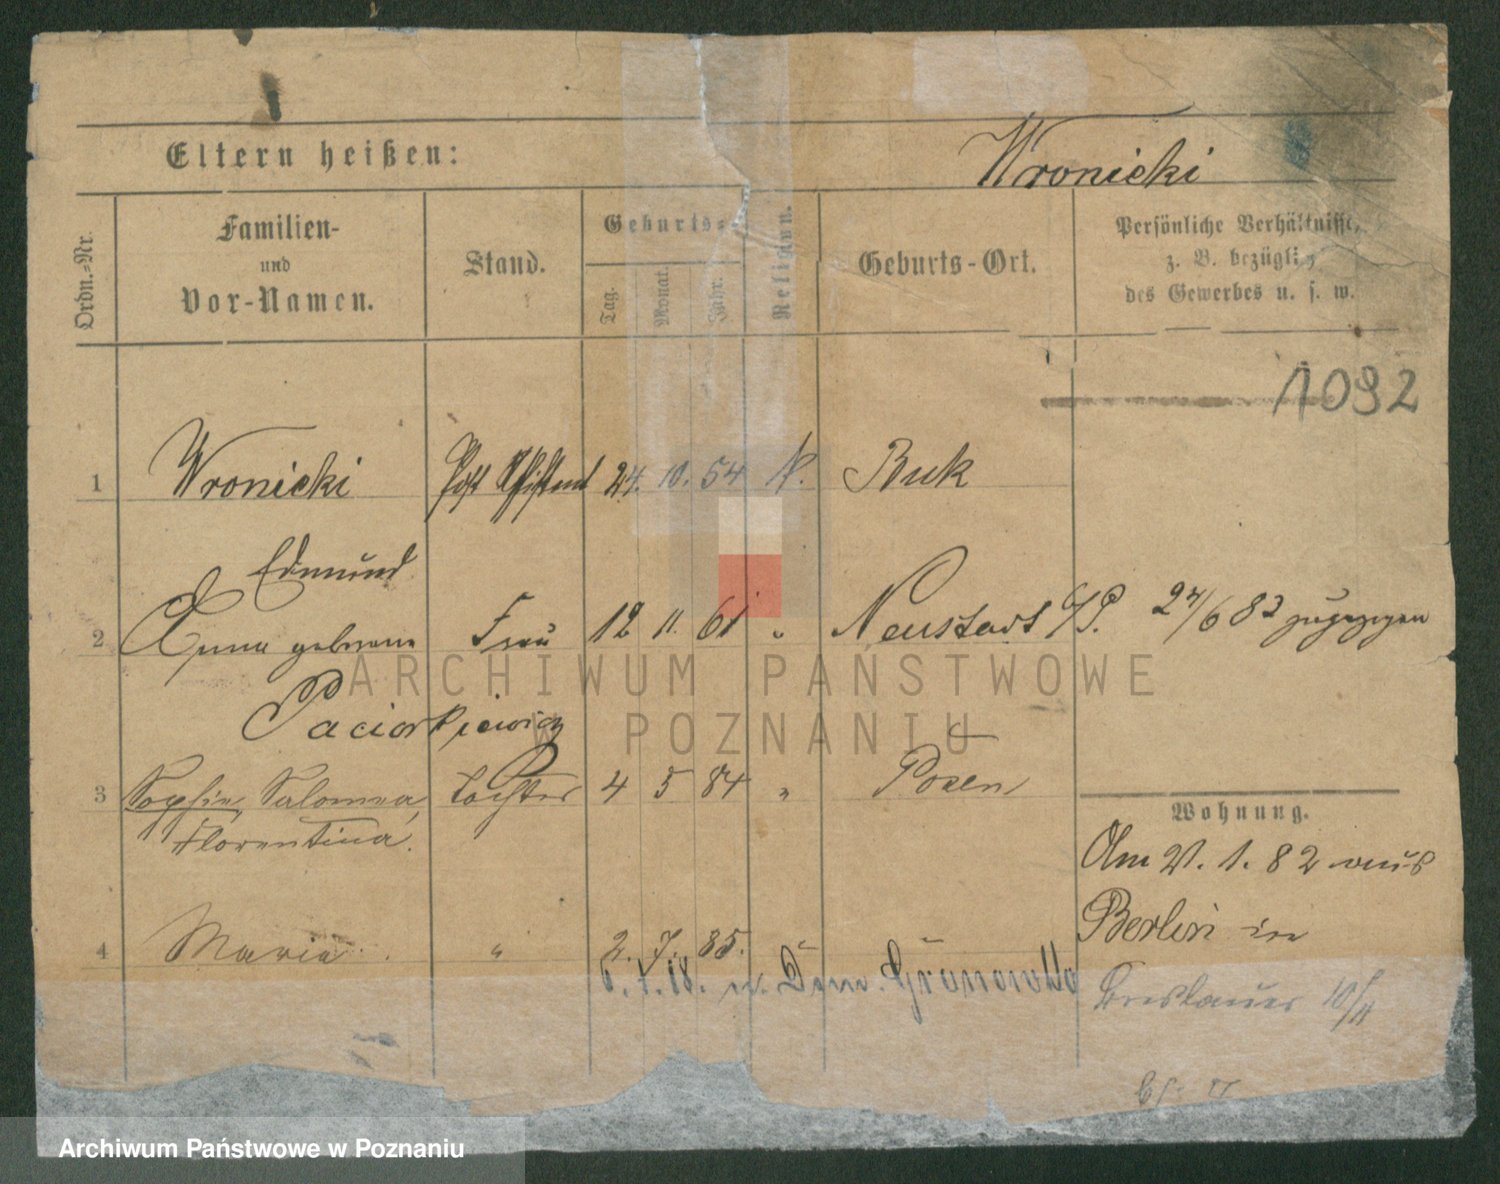 Eltern heißen:
Wronicki
Ordn.-Nr.
Familien-
und
Vor-Namen.
Stand.
Geburts-
Tag.
Monat.
Jahr.
Religion.
Geburts-Ort.
Persönliche Verhältnisse,
z. B. bezüglich
des Gewerbes u. s. w.
1092
1 Wronicki Post Assistent 24. 10. 54 K. Buk
Edmund
2 Anna geborene Frau 12 11. 61 " Neustadt b/P. 24/6 83 zugezogen
Paciorkiewicz
3 Sophie, Salomea, Tochter 4 5 84 " Posen
Florentina.
Wohnung.
Am 21. 1. 82 aus
Berlin in
4 Maria " 2. 7. 85.
6. 7. 18. n. Dom. Gronowko
Breslauer 10/11
ARCHIWUM PAŃSTWOWE
W POZNANIU
Archiwum Państwowe w Poznaniu